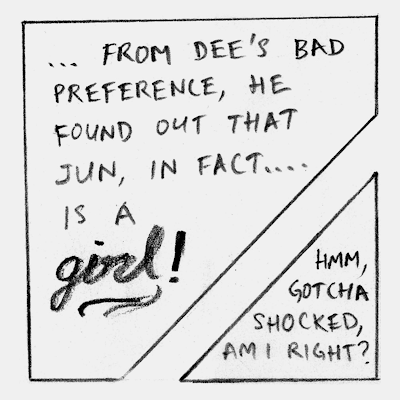 ... FROM DEE'S BAD
PREFERENCE, HE
FOUND OUT THAT
JUN, IN FACT....
IS A
girl!
HMM,
GOTCHA
SHOCKED,
AM I RIGHT?